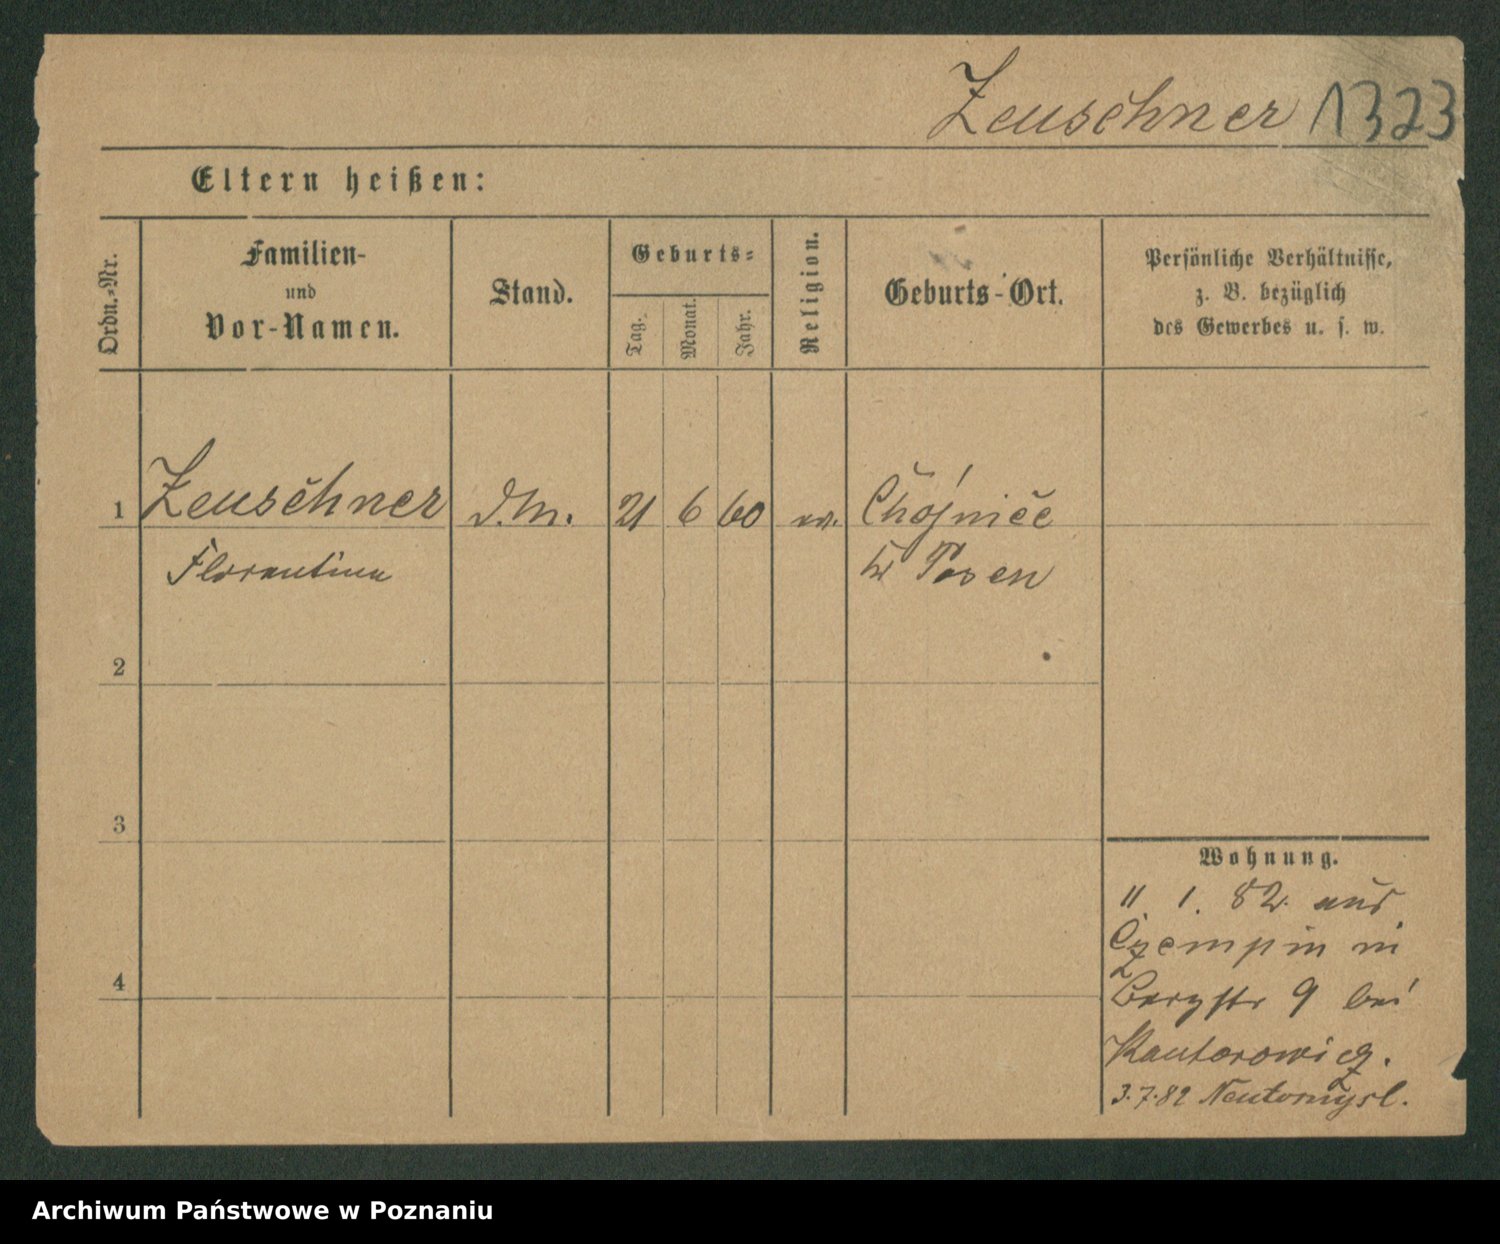 Zeuschner 1323
Eltern heißen:
Ordn.-Nr.
Familien-
und
Vor-Namen.
Stand.
Geburts-
Tag.
Monat.
Jahr.
Religion.
Geburts-Ort.
Persönliche Verhältnisse,
z. B. bezüglich
des Gewerbes u. s. w.
1 Zeuschner d.M. 21 6 60 ev. Chojnice
Florentine Kr Posen
2
3
4
Wohnung.
11 1. 82. aus
Czempin in
Bergstr 9 bei
Kantorowicz.
3.7.82 Neutomysl.
Archiwum Państwowe w Poznaniu